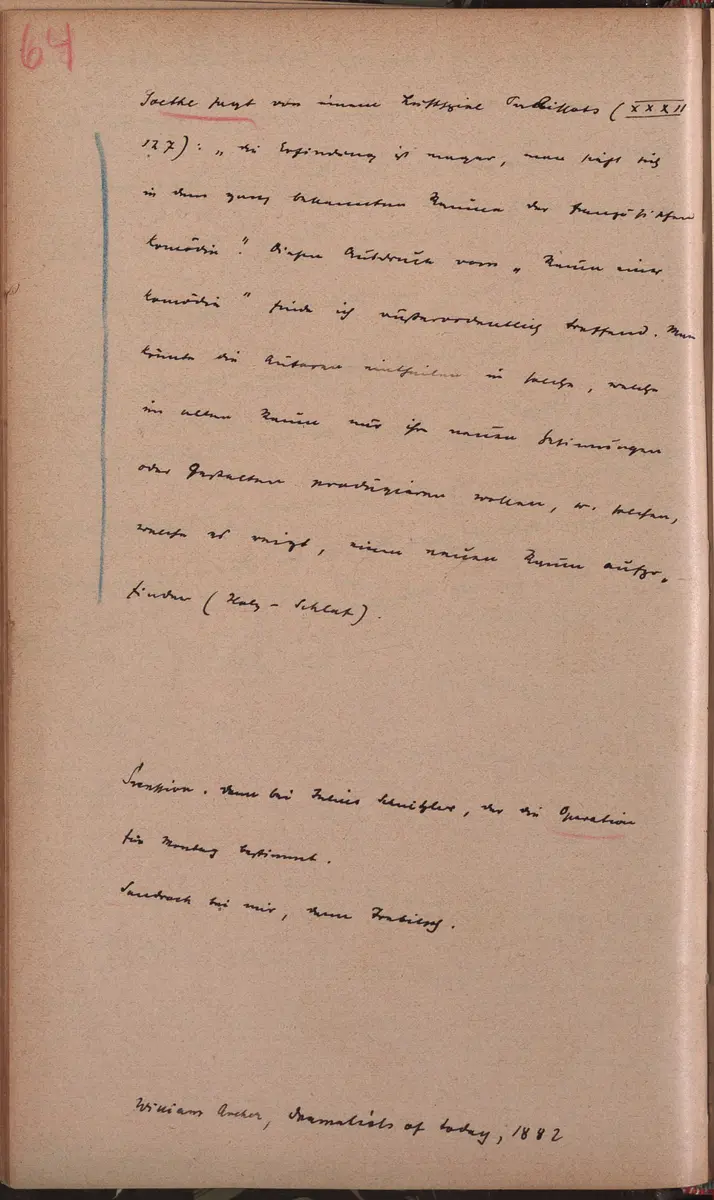 64
Goethe sagt von einem Lustspiel (XXXII
127): „die Erfindung ist mager, man sieht sich
in dem ganz bekannten Raume der französischen
Komödie". Diesen Ausdruck vom „Raum einer
Komödie" finde ich außerordentlich treffend. Man
könnte die Autoren eintheilen in solche, welche
im alten Raum nur ihre neuen
oder Gestalten produzieren wollen, u. solchen,
welche es reizt, einen neuen Raum aufzu„
finden (Holz – Schlaf).
Secession. dann bei Julius Schnitzler, der die Operation
für Montag bestimmt.
Sandrock bei mir, dann Trebitsch.
William Archer, Dramatists of today, 1882